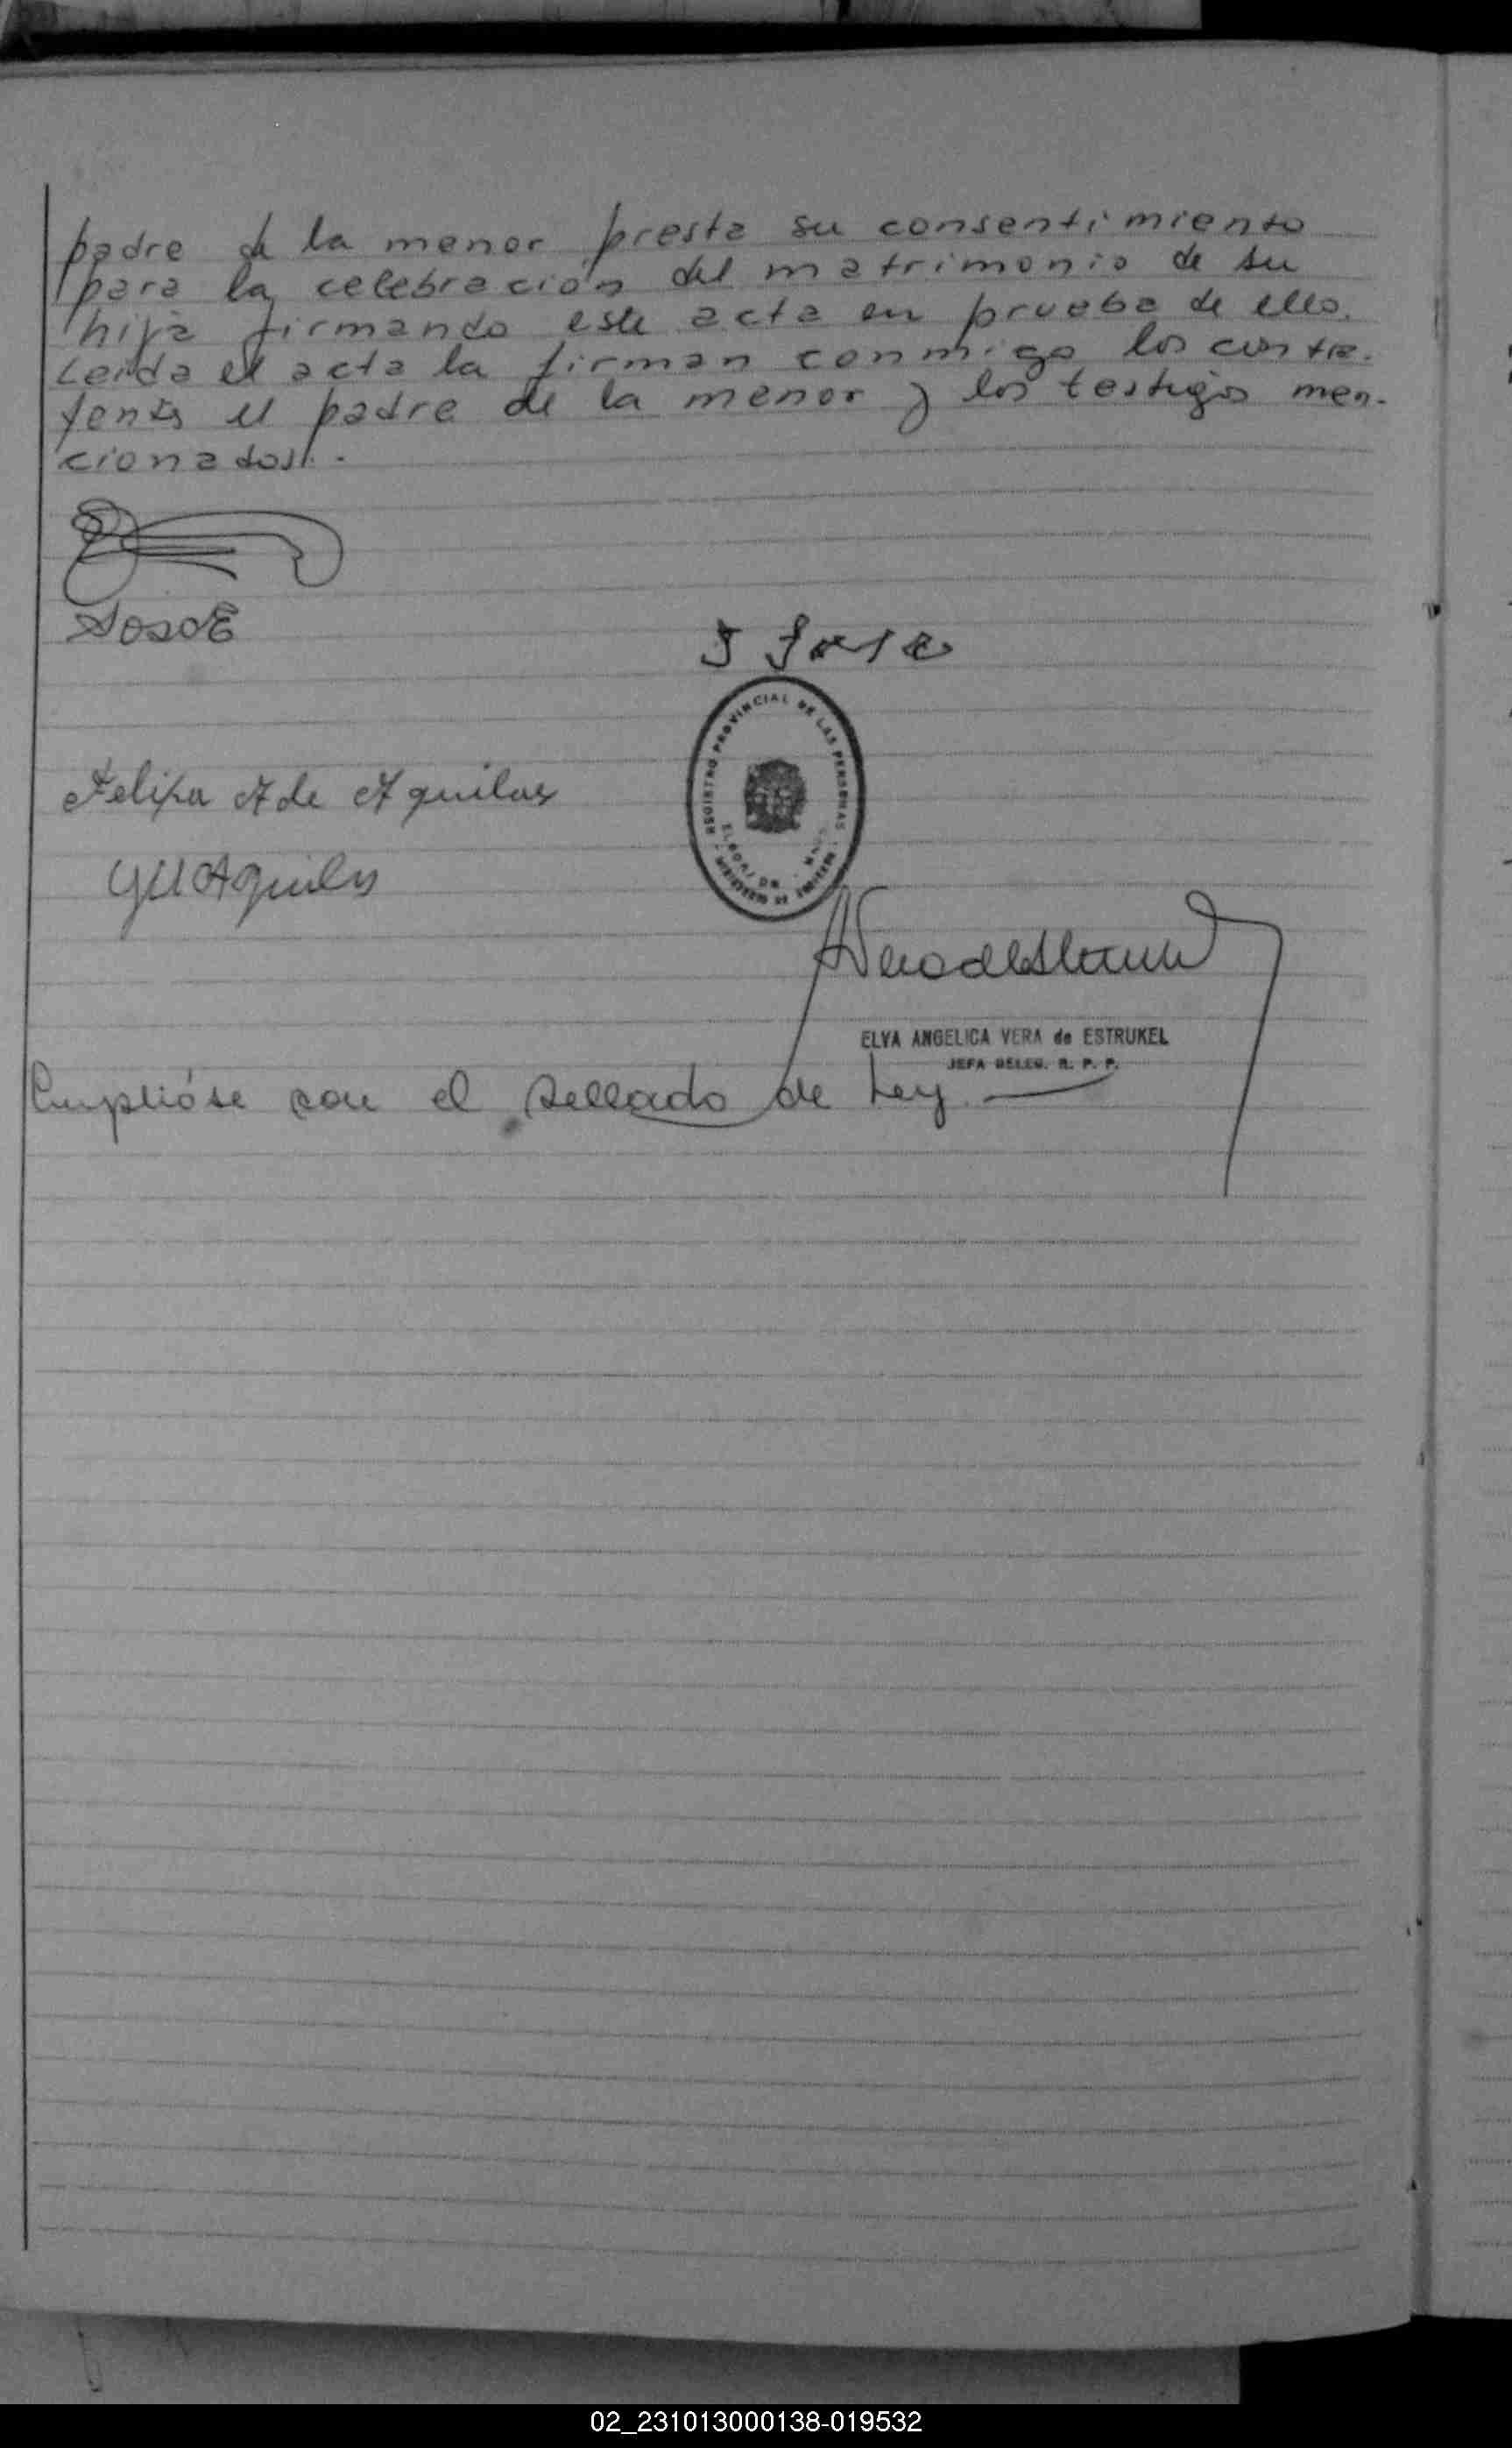 padre de la menor presta su consentimiento
para la celebración del matrimonio de su
hija firmando este acta en prueba de ello.
Leída el acta la firman conmigo los contra-
yentes el padre de la menor y los testigos men-
cionados.-
Felipa A de Aguilar
REGISTRO PROVINCIAL DE LAS PERSONAS
ELVA ANGELICA VERA de ESTRUKEL
JEFA DELEG. R. P. P.
Cumplióse con el sellado de Ley
02_231013000138-019532